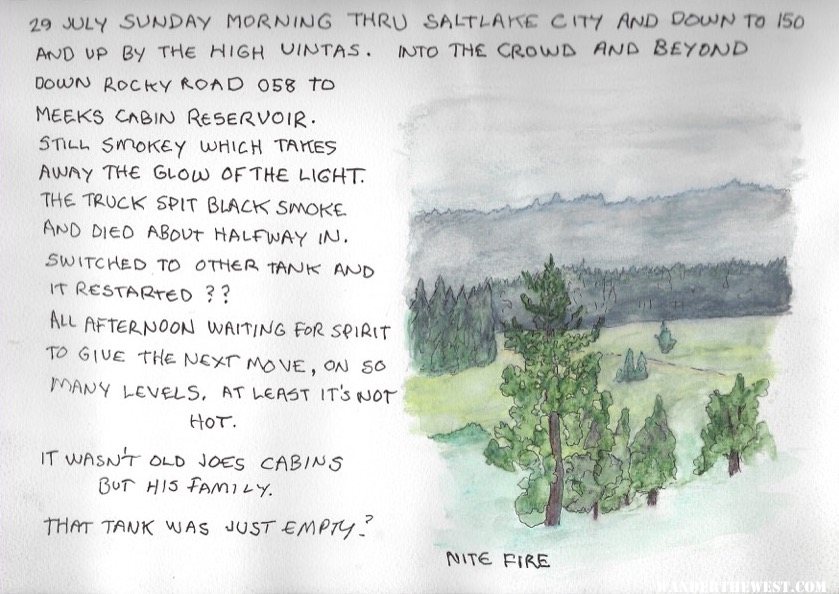 29 JULY SUNDAY MORNING THRU SALTLAKE CITY AND DOWN TO 150
AND UP BY THE HIGH UINTAS. INTO THE CROWD AND BEYOND
DOWN ROCKY ROAD 058 TO
MEEKS CABIN RESERVOIR.
STILL SMOKEY WHICH TAKES
AWAY THE GLOW OF THE LIGHT.
THE TRUCK SPIT BLACK SMOKE
AND DIED ABOUT HALFWAY IN.
SWITCHED TO OTHER TANK AND
IT RESTARTED ??
ALL AFTERNOON WAITING FOR SPIRIT
TO GIVE THE NEXT MOVE, ON SO
MANY LEVELS. AT LEAST IT'S NOT
HOT.
IT WASN'T OLD JOES CABINS
BUT HIS FAMILY.
THAT TANK WAS JUST EMPTY?
NITE FIRE
WANDERTHEWEST.COM